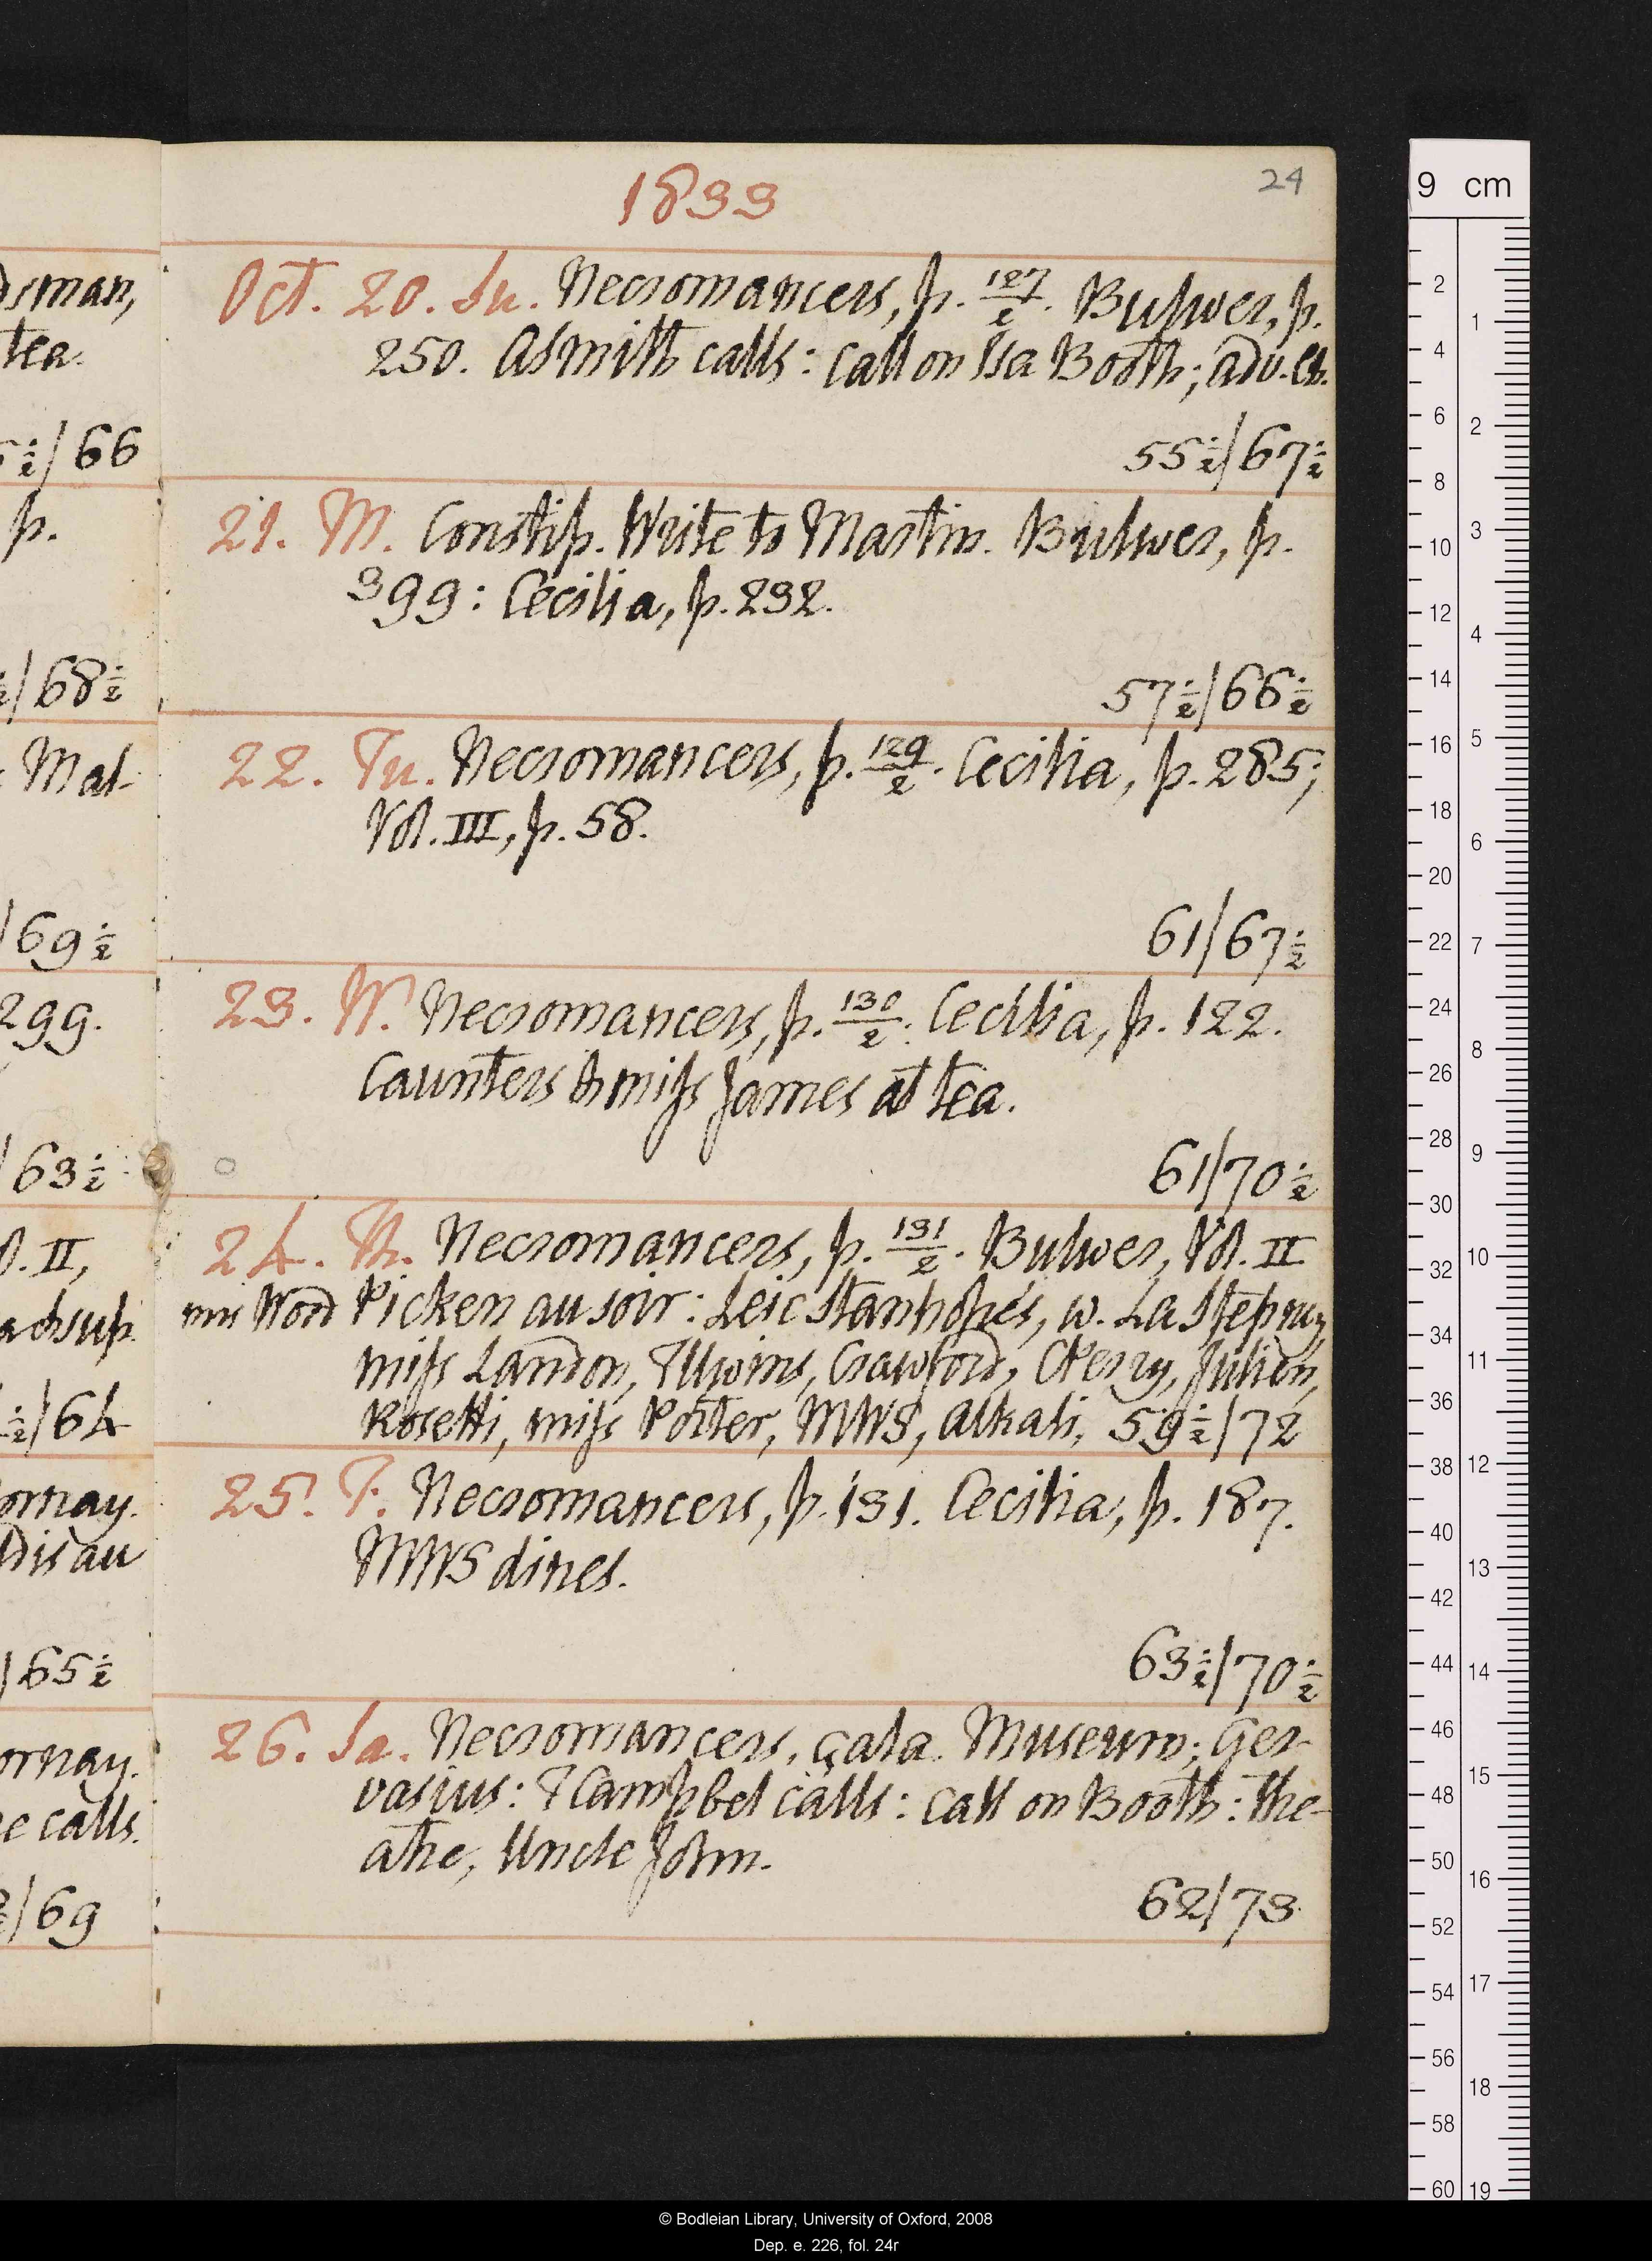 1833
24
Oct. 20. Su. Necromancers, p. 127/2. Bulwer, p.
250. ASmith calls: call on Isa Booth; adv. Ch.
55½/67½
21. M. Constip. Write to Martin. Bulwer, p.
399: Cecilia, p. 232.
57½/66½
22. Tu. Necromancers, p. 129/2. Cecilia, p. 285;
Vol. III, p. 58.
61/67½
23. W. Necromancers, p. 130/2. Cecilia, p. 122.
Caunters & miss James at tea.
61/70½
24. Th. Necromancers, p. 131/2. Bulwer, Vol. II
mrs Wood Picken au soir: Leic Stanhopes, w. La Stepney,
miss Landon, TUwins, Crawford, Cherry, Julien,
Rosetti, miss Porter, MWS, alkali, 59½/72
25. F. Necromancers, p. 131. Cecilia, p. 187.
MWS dines.
63½/70½
26. Sa. Necromancers, çala. Museum; Ger-
vasius: TCampbel calls: call on Booth: the-
atre, Uncle John.
62/73
dsman,
tea.
½/66
p.
½/68½
Mal-
/69½
299.
/63½
l. II,
½/64
ornay.
/65½
ornay.
e calls.
/69
9 cm
2
4
6
8
10
12
14
16
18
20
22
24
26
28
30
32
34
36
38
40
42
44
46
48
50
52
54
56
58
60
1
2
3
4
5
6
7
8
9
10
11
12
13
14
15
16
17
18
19
© Bodleian Library, University of Oxford, 2008
Dep. e. 226, fol. 24r